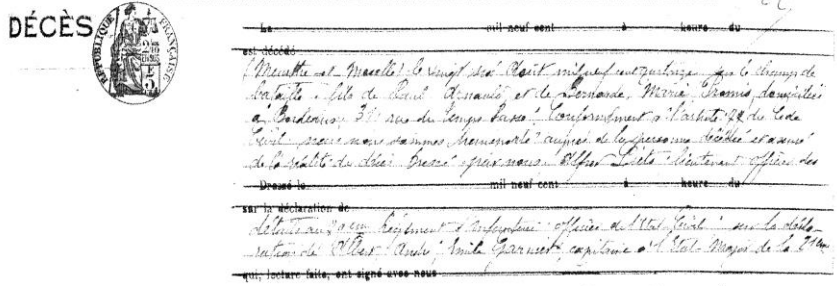 DÉCÈS
RÉPUBLIQUE FRANÇAISE
Le mil neuf cent à heure du
est décédé
(Meurthe et Moselle) le vingt six Août mil neuf cent quatorze sur le champ de
bataille fils de Paul Arnauld et de Marie domiciliés
à Bordeaux 31 rue du Temps Passé. Conformément à l'article 77 du Code
Civil nous nous sommes transporté auprès de la personne décédée et assuré
de la réalité du décès Dressé par nous Alfred lieutenant officier des
Dressé le mil neuf cent à heure du
sur la déclaration de
détails au Régiment d'Infanterie officier de l'Etat Civil sur la décla-
ration de Albert André Emile Garnier, capitaine à l'Etat Major de la
qui, lecture faite, ont signé avec nous